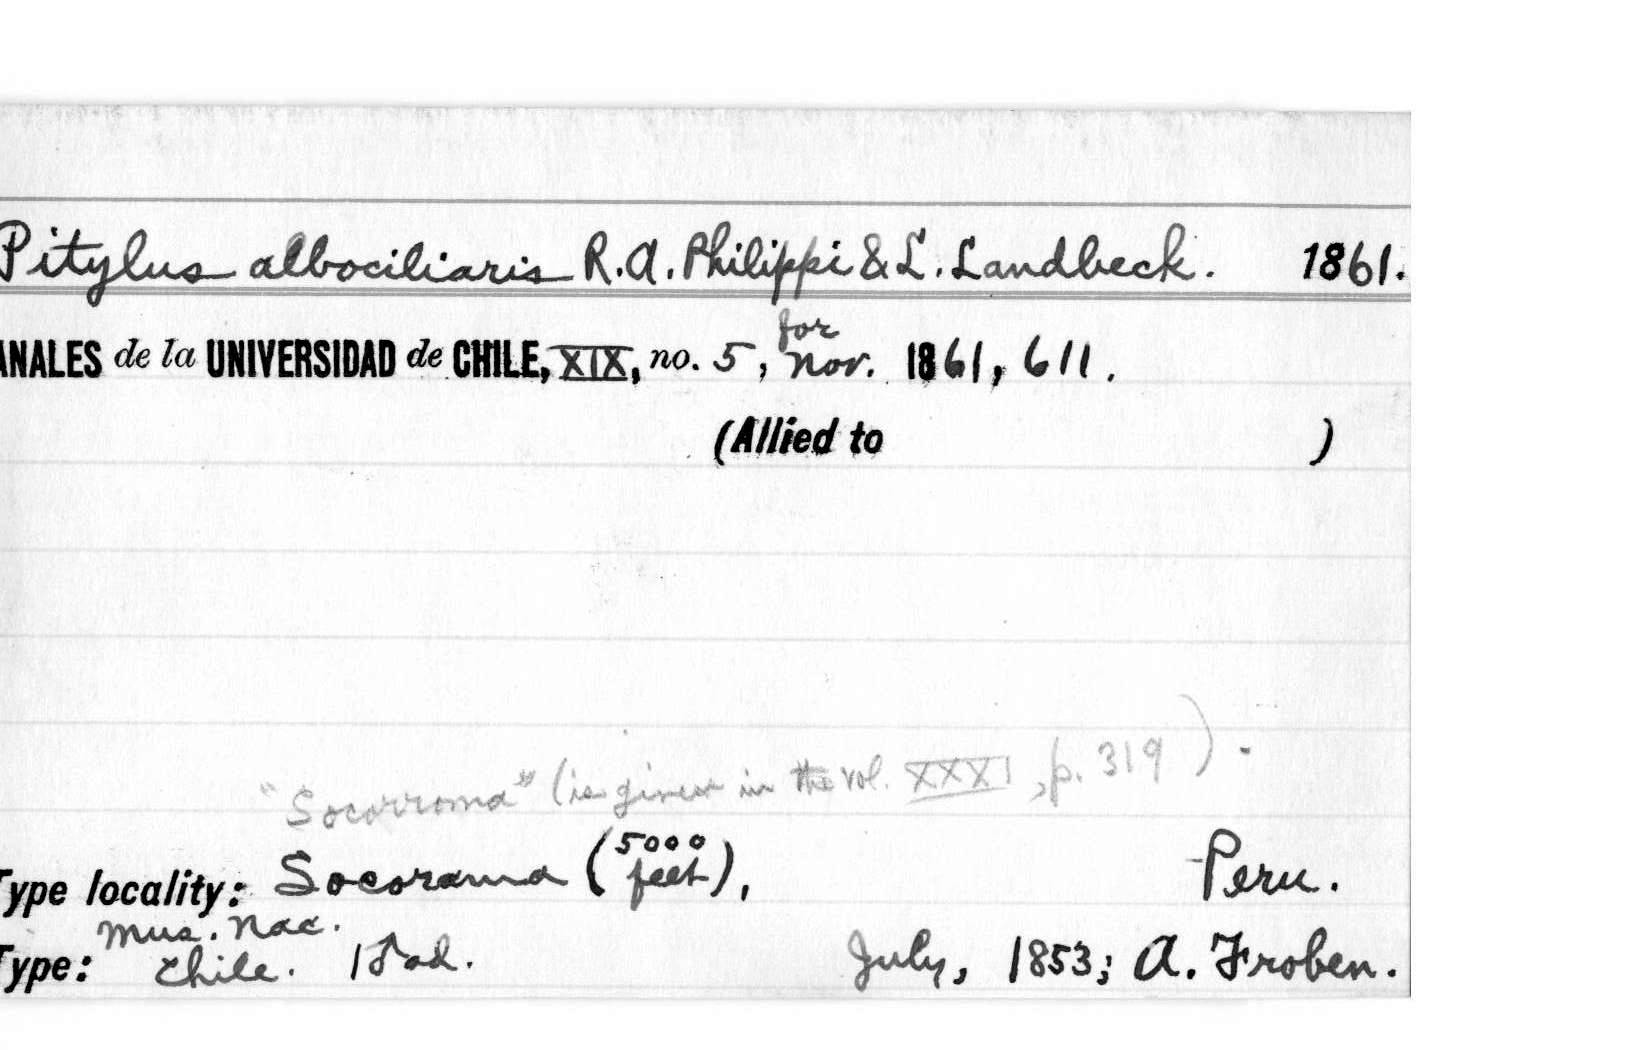 Pitylus albociliaris R.A. Philippi & L. Landbeck. 1861.
for
ANALES de la UNIVERSIDAD de CHILE, XIX, no. 5, Nov. 1861, 611.
(Allied to )
"Socorroma" (is given in the vol. XXXI, p. 319).
Type locality: Socorama (5000 feet), Peru.
Mus. Nac.
Type: Chile. 1 ad. July, 1853; A. Froben.